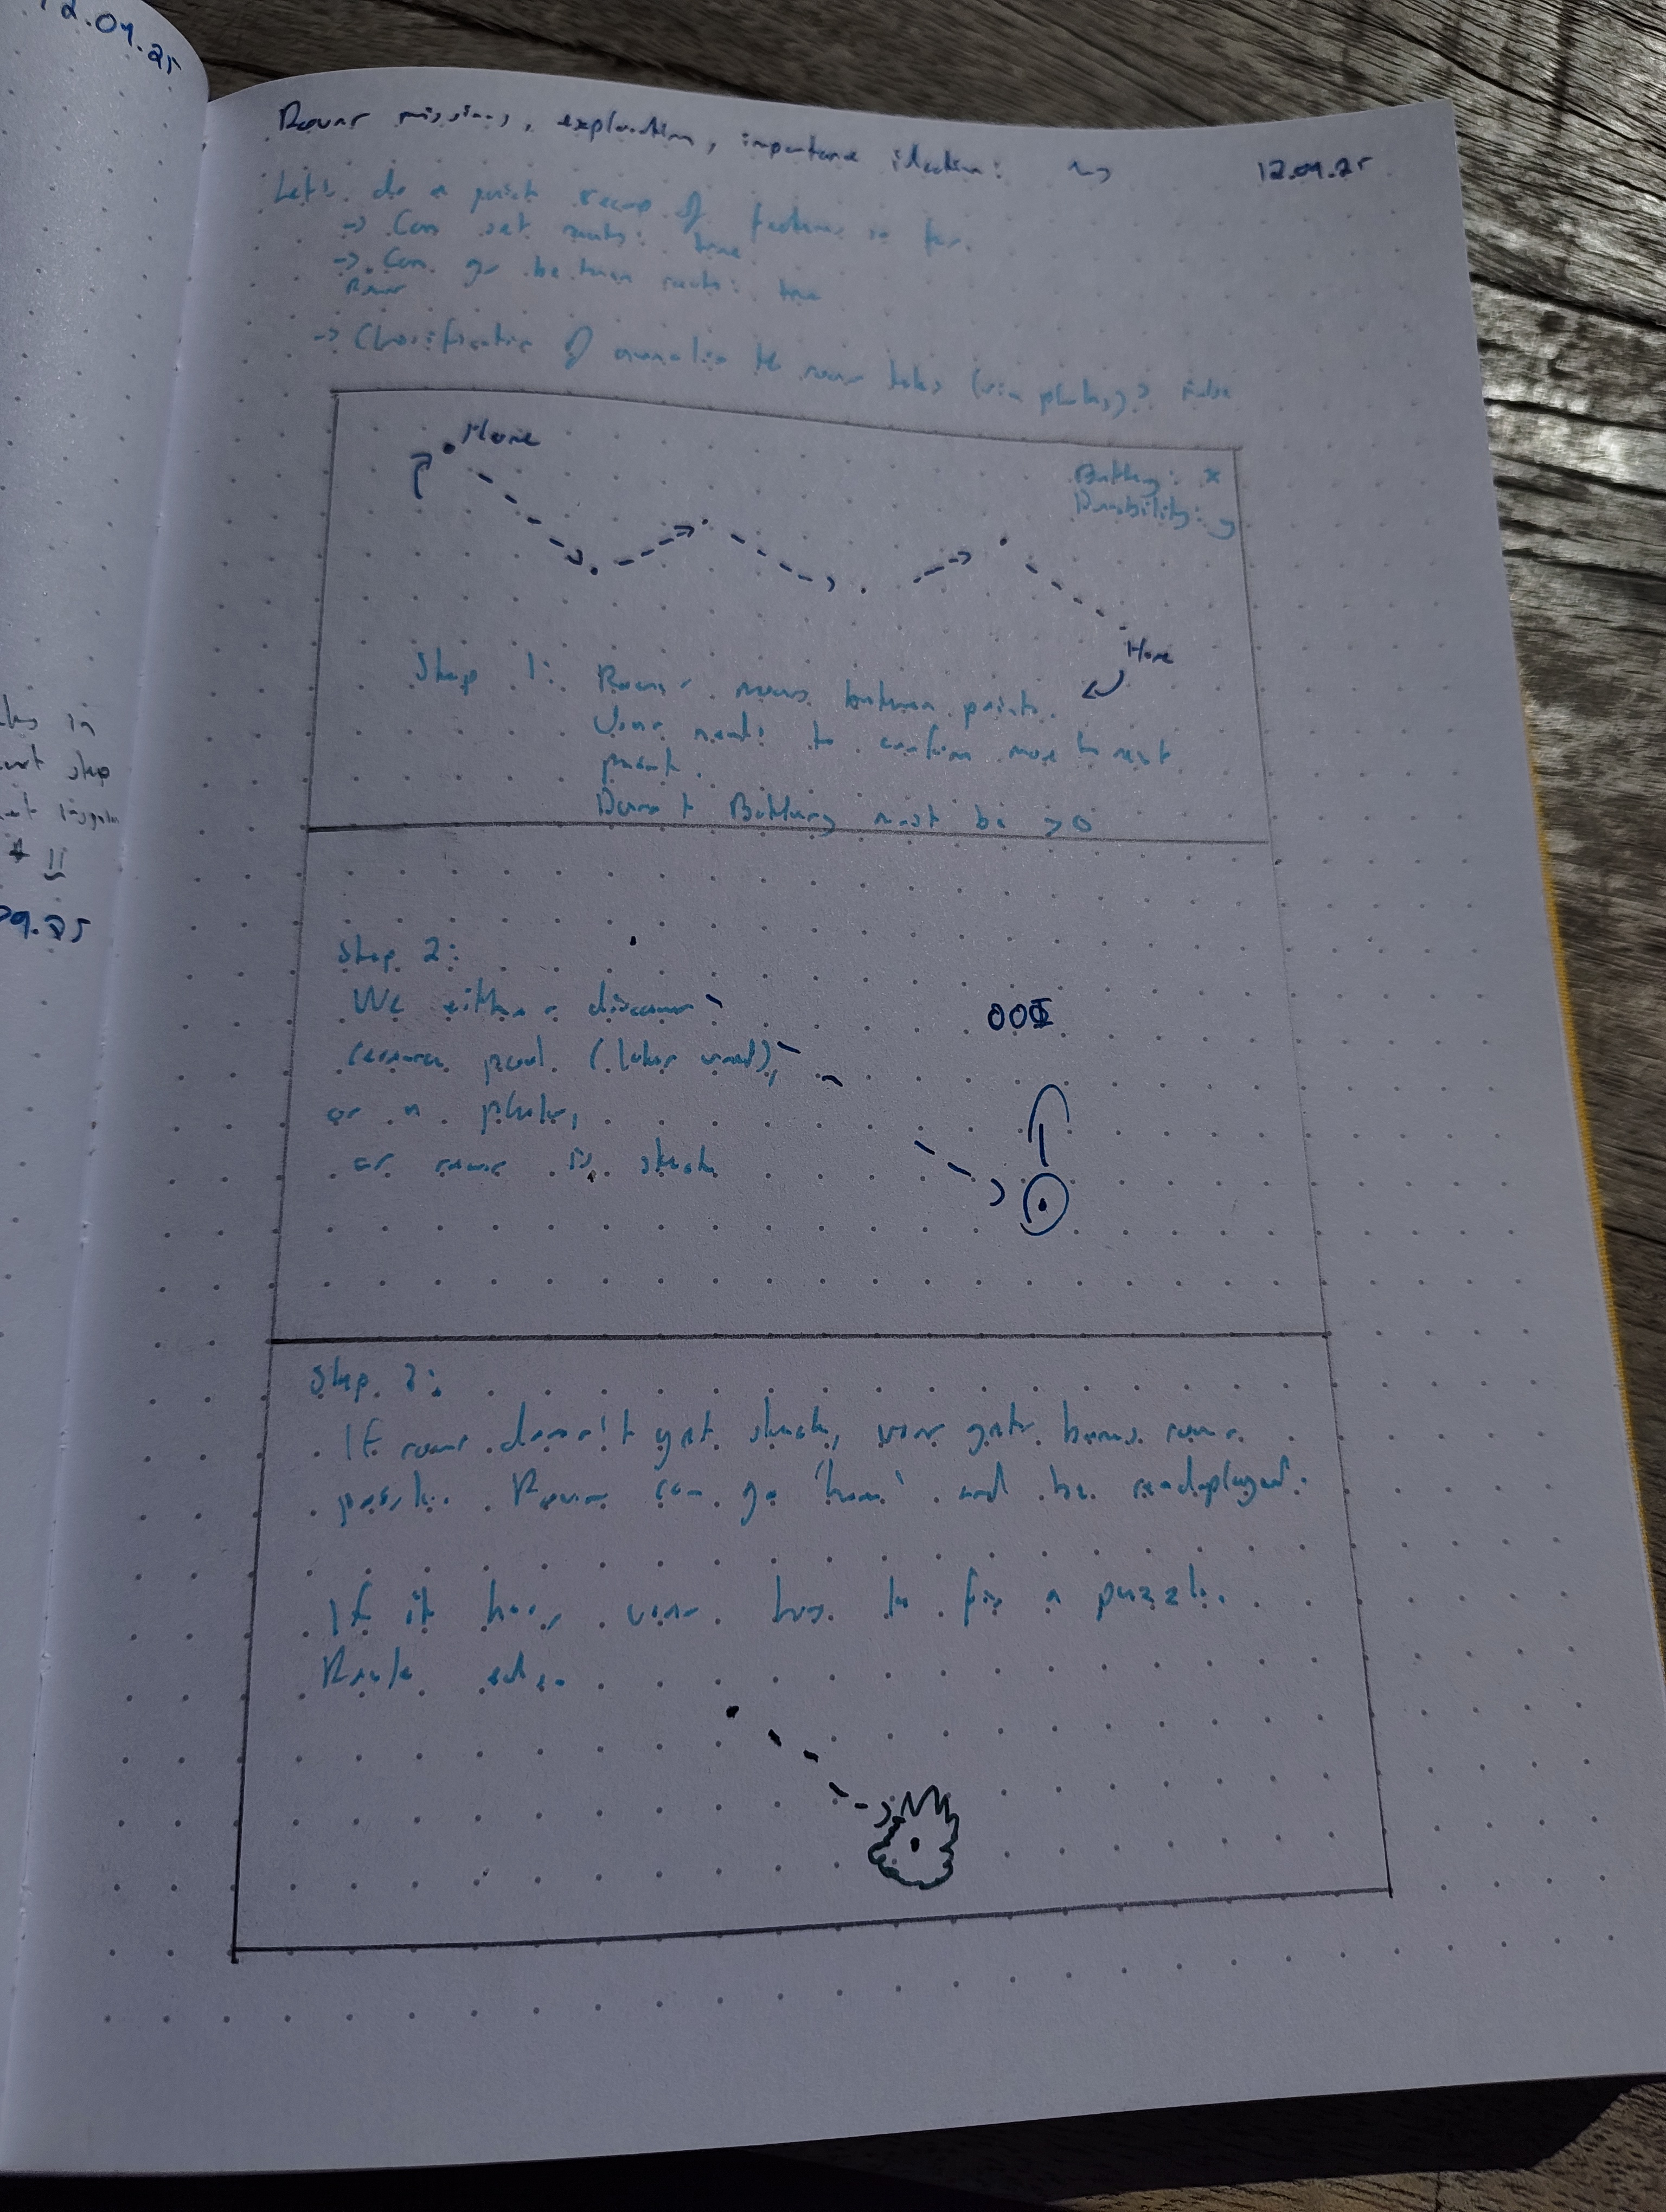 12.09.25
Rover missions, exploration, importance ideation:
12.09.25
Let's do a quick recap of features so far.
-> Can set routes: true
-> Can go between routes: true
Rover
-> Classification of anomalies the rover takes (via photos): False
Home
Battery: x
Durability: y
Home
Step 1: Rover moves between points.
User needs to confirm move to next
point.
Dura + Battery must be >0
in
step
09.25
Step 2:
We either discover
resource pool (later used),
or a photo,
or rover is stuck
Step 3:
If rover doesn't get stuck, user gets bonus rover
. Rover can go 'home' and be redeployed.
If it has, user has to fix a puzzle.